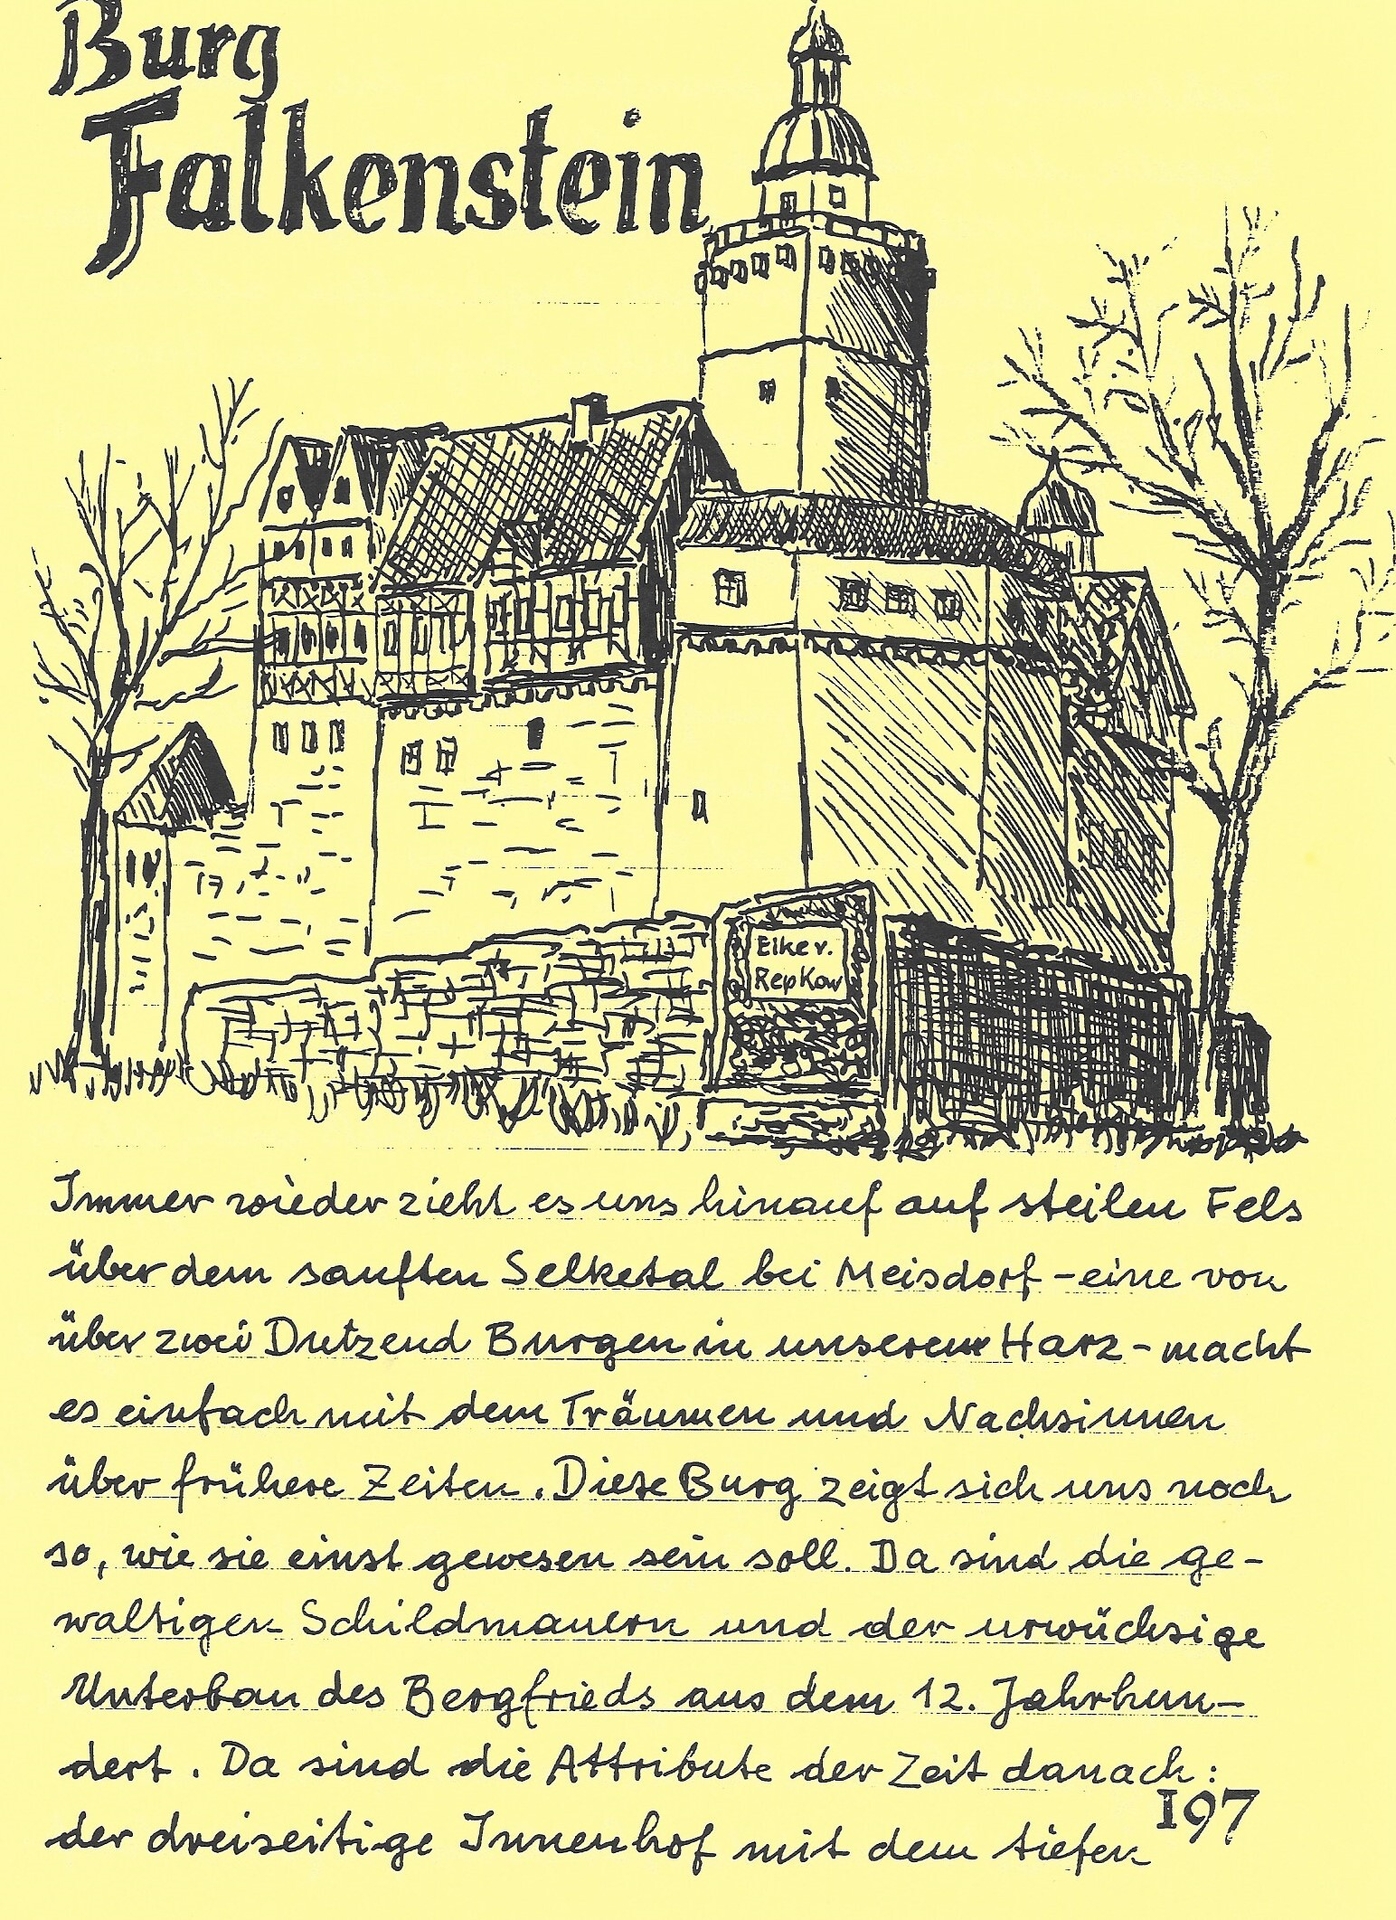 Burg
Falkenstein
Eike v.
Repkow
Immer wieder zieht es uns hinauf auf steilen Fels
über dem sanften Selketal bei Meisdorf - eine von
über zwei Dutzend Burgen in unserem Harz - macht
es einfach mit dem Träumen und Nachsinnen
über frühere Zeiten. Diese Burg zeigt sich uns noch
so, wie sie einst gewesen sein soll. Da sind die ge-
waltigen Schildmauern und der urwüchsige
Unterbau des Bergfrieds aus dem 12. Jahrhun-
dert. Da sind die Attribute der Zeit danach:
der dreiseitige Innenhof mit dem tiefen
197